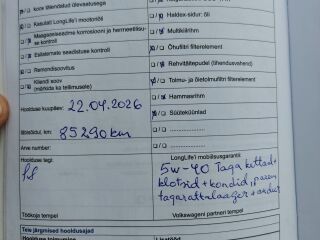 koos tühendatud ülevaatusega
Kasutati LongLife'i mootoriõli
Maagaasiseadme korrosiooni ja hermeetilisuse kontroll
Esilaternate seadistuse kontroll
Remondisoovitus
Kliendi soov
(märkida ka tellimusele)
Hoolduse kuupäev: 22.04.2026
85290 km
Arve number:
Hoolduse tegi:
Töökoja tempel
Haldex-sidur: õli
Multikiilrihm
Õhufiltri filterelement
Rehvitäitepudel (tähendusvahend)
Tolmu- ja õietolmufiltri filterelement
Hammasrihm
Süüteküünlad
LongLife'i mobiilsusgarantii
5w-40 Taga kettad+
klotsid + kondid, parem
tagarattalaager + andur
Volkswageni partneri tempel
Teie järgmised hooldusajad
Hoolduse toimumine
Lisatööd